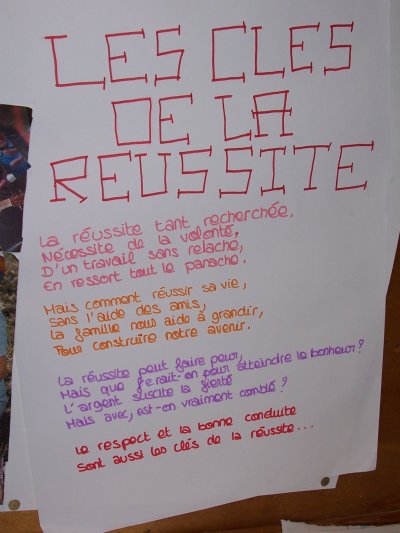 LES CLES
DE LA
REUSSITE
La réussite tant recherchée,
Nécessite de la volonté,
D'un travail sans relache,
En ressort tout le panache.
Mais comment réussir sa vie,
Sans l'aide des amis,
La famille nous aide à grandir,
Pour construire notre avenir.
La réussite peut faire peur,
Mais que ferait-on pour atteindre le bonheur?
L'argent suscite la fierté
Mais avec, est-on vraiment comblé?
Le respect et la bonne conduite
Sont aussi les clés de la réussite...